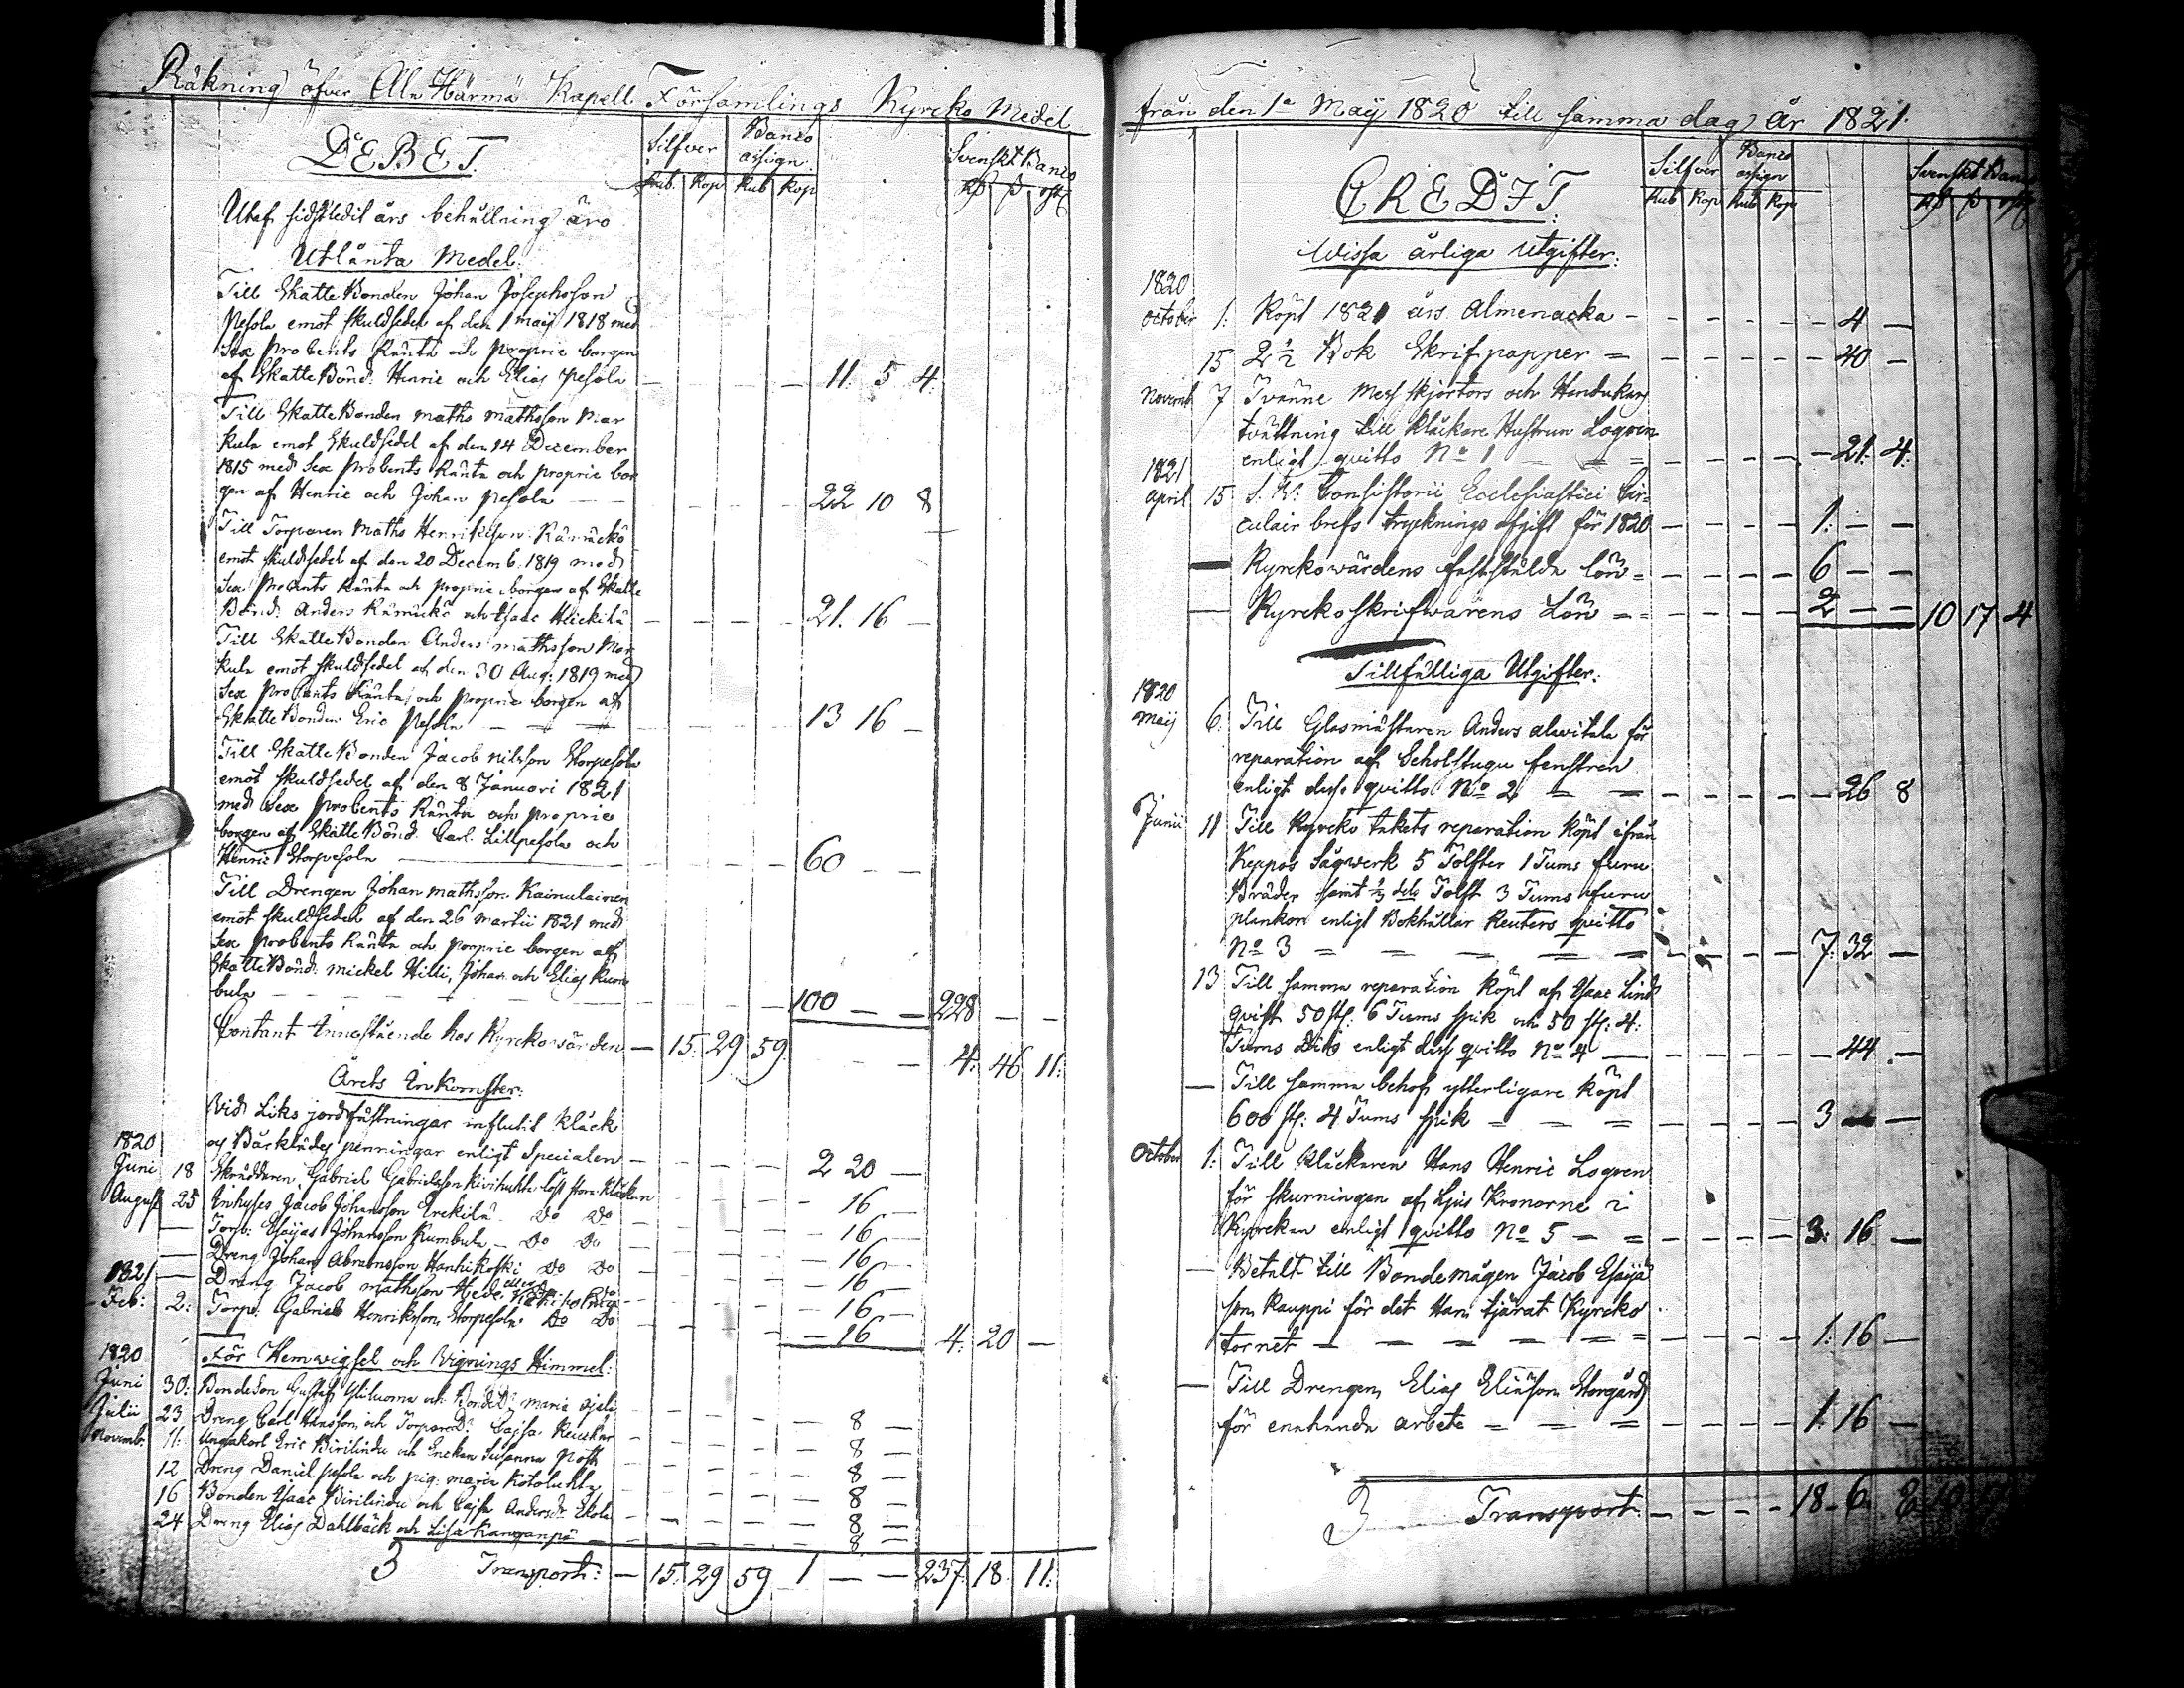 Räkning öfver Ala Härmä Kapell Församlings Kyrcko Medel
DEBET.
Silfver Banco assign. Svenskt Banco
Rub. Kop Rub Kop
Utaf sidstledit års behållning äro
Utlånta Medel:
Till Skatte Bonden Johan Josephsson
Pesola emot skuldsedel af den 1 Maij 1818 med
Sex Procents Ränta och proprie borgen
af Skatte Bönd: Henric och Elias Pesola — — — — 11. 5 4.
Till Skatte Bonden Maths Mathsson Mar
kula emot Skuldsedel af den 14 December
1815 med Sex Procents Ränta och proprie bor
gen af Henric och Johan Pesola — — 22 10 8
Till Torparen Maths Henricsson Kärnäckö
emot skuldsedel af den 20 Decemb. 1819 med
Sex Procents Ränta och proprie borgen af Skatte
Bönd: Anders Kärnäckö och Isaac Heickilä — — — — 21. 16 —
Till Skatte Bonden Anders Mathsson Mar
kula emot skuldsedel af den 30 Aug: 1819 med
Sex Procents Ränta och proprie borgen af
Skatte Bonden Eric Pesola — — — 13 16 —
Till Skatte Bonden Jacob Nilsson Storpesola
emot skuldsedel af den 8 Januari 1821
med Sex Procents Ränta och proprie
borgen af Skatte Bönd. Carl Lillpesola och
Henric Storpesola — — — — 60 — —
Till Drengen Johan Mathsson Kainulainen
emot skuldsedel af den 26 Martii 1821 med
Sex Procents Ränta och proprie borgen af
Skatte Bönd: Mickel Hilli, Johan och Elias Kum
bula — — — — 100 — — 228 — —
Contant Innestående hos Kyrckovärden — 15. 29 59. — — 4: 46 11:
Årets Inkomster:
Vid Liks jordfästningar influtit Kläck
och Bårklädes penningar enligt Specialen — — — — 2 20 —
1820
Juni 18 Skräddaren Gabriel Gabrielsson Kivihuhta löst stora Kläckan — — — 16 —
August 25 Inhyses Jacob Johansson Erckilä Do Do — — — 16 —
— Torp: Esaijas Johansson Kumbula — Do Do — — — 16 —
— Dreng Johan Abramsson Hanhikoski Do Do — — — 16 —
1821 — Dreng Jacob Mathsson — — — 16 —
Feb: 2: Torp: Gabriel Henriksson Storpesola Do Do — — — 16 4: 20 —
1820
För Hemvigsel och Vignings Himmel:
Juni 30: Bondeson Gustaf Yliluoma och Bonde Dr Maria — — — 8 —
Julii 23 Dreng Carl Hansson och Torpare Dr Cajsa — — — 8 —
Novemb. 11: Ungkarl Eric Birilindu och Enckan Susanna Post — — — 8 —
12 Dreng Daniel Pesola och pig: Maria Kotoluhta — — — 8 —
16 Bonden Isaac Birilindu och Cajsa Andersdr Ekola — — — 8 —
24 Dreng Elias Dahlbäck och Lisa Kanganpä — — — 8 —
3 Transport: — 15: 29 59 1 — — 237. 18. 11:
från den 1a Maij 1820 till samma dag år 1821.
CREDIT.
Silfver Banco assign Svenskt Banco
Rub Kop Rub Kop
Wissa årliga Utgifter:
1820
October 1: Köpt 1821 års Almenacka — — — — — 4 —
15 2 1/2 Bok Skrifpapper = — — — — — 40 —
Novemb 7 Tvänne Mess skjortors och Handukars
tvättning till Kläckare Hustrun Logren
enligt qvitto No 1 — — — — — 21. 4:
1821
April 15 S. V. Consistorii Ecclesiastici Cir=
culair brefs trycknings afgift för 1820 — — — — 1: — —
— Kyrckovärdens fastställda lön = — — — — 6 — —
— Kyrckoskrifvarens Lön = — — — — 2 — — 10 17 4
Tillfälliga Utgifter:
1820
Maij 6 Till Glasmästaren Anders Alavitala för
reparation af Scholstugu fenstren
enligt dess qvitto No 2 = — — — — — 26 8
Junii 11 Till Kyrcko takets reparation köpt ifrån
Keppos Sågverk 5 Tolfter 1 Tums furu
Bräder samt 1/3 dels Tolft 3 Tums furu
plankor enligt Bokhållar Reuters qvitto
No 3 = — — — 7: 32 —
13 Till samma reparation köpt af Isaac Lind
qvist 50 st: 6 Tums spik och 50 st: 4:
Tums Dito enligt dess qvitto No 4 — — — — — 44 —
— Till samma behof ytterligare köpt
600 st: 4 Tums spik = = = — — — — 3 — —
October 1: Till Kläckaren Hans Henric Logren
för skurningen af Ljus Kronorne i
Kyrckan enligt qvitto No 5 — = — — — — 3: 16 —
— Betalt till Bondemågen Jacob Esaijä
son Kauppi för det Han tjärat Kyrcko
tornet — — — — — 1: 16 —
— Till Drengen Elias Eliäson Storgård
för enahanda arbete = = = — — — — 1: 16 —
3 Transport: — — — — 18. 6.